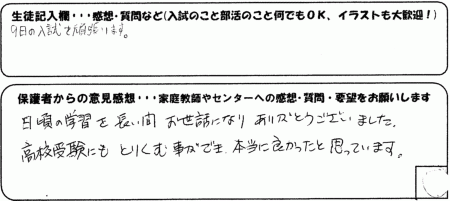 生徒記入欄・・・感想・質問など(入試のこと部活のこと何でもOK、イラストも大歓迎！)
9日の入試を頑張ります。
保護者からの意見感想・・・家庭教師やセンターへの感想・質問・要望をお願いします
日頃の学習を長い間お世話になりありがとうございました。
高校受験にもとりくむ事ができ、本当に良かったと思っています。